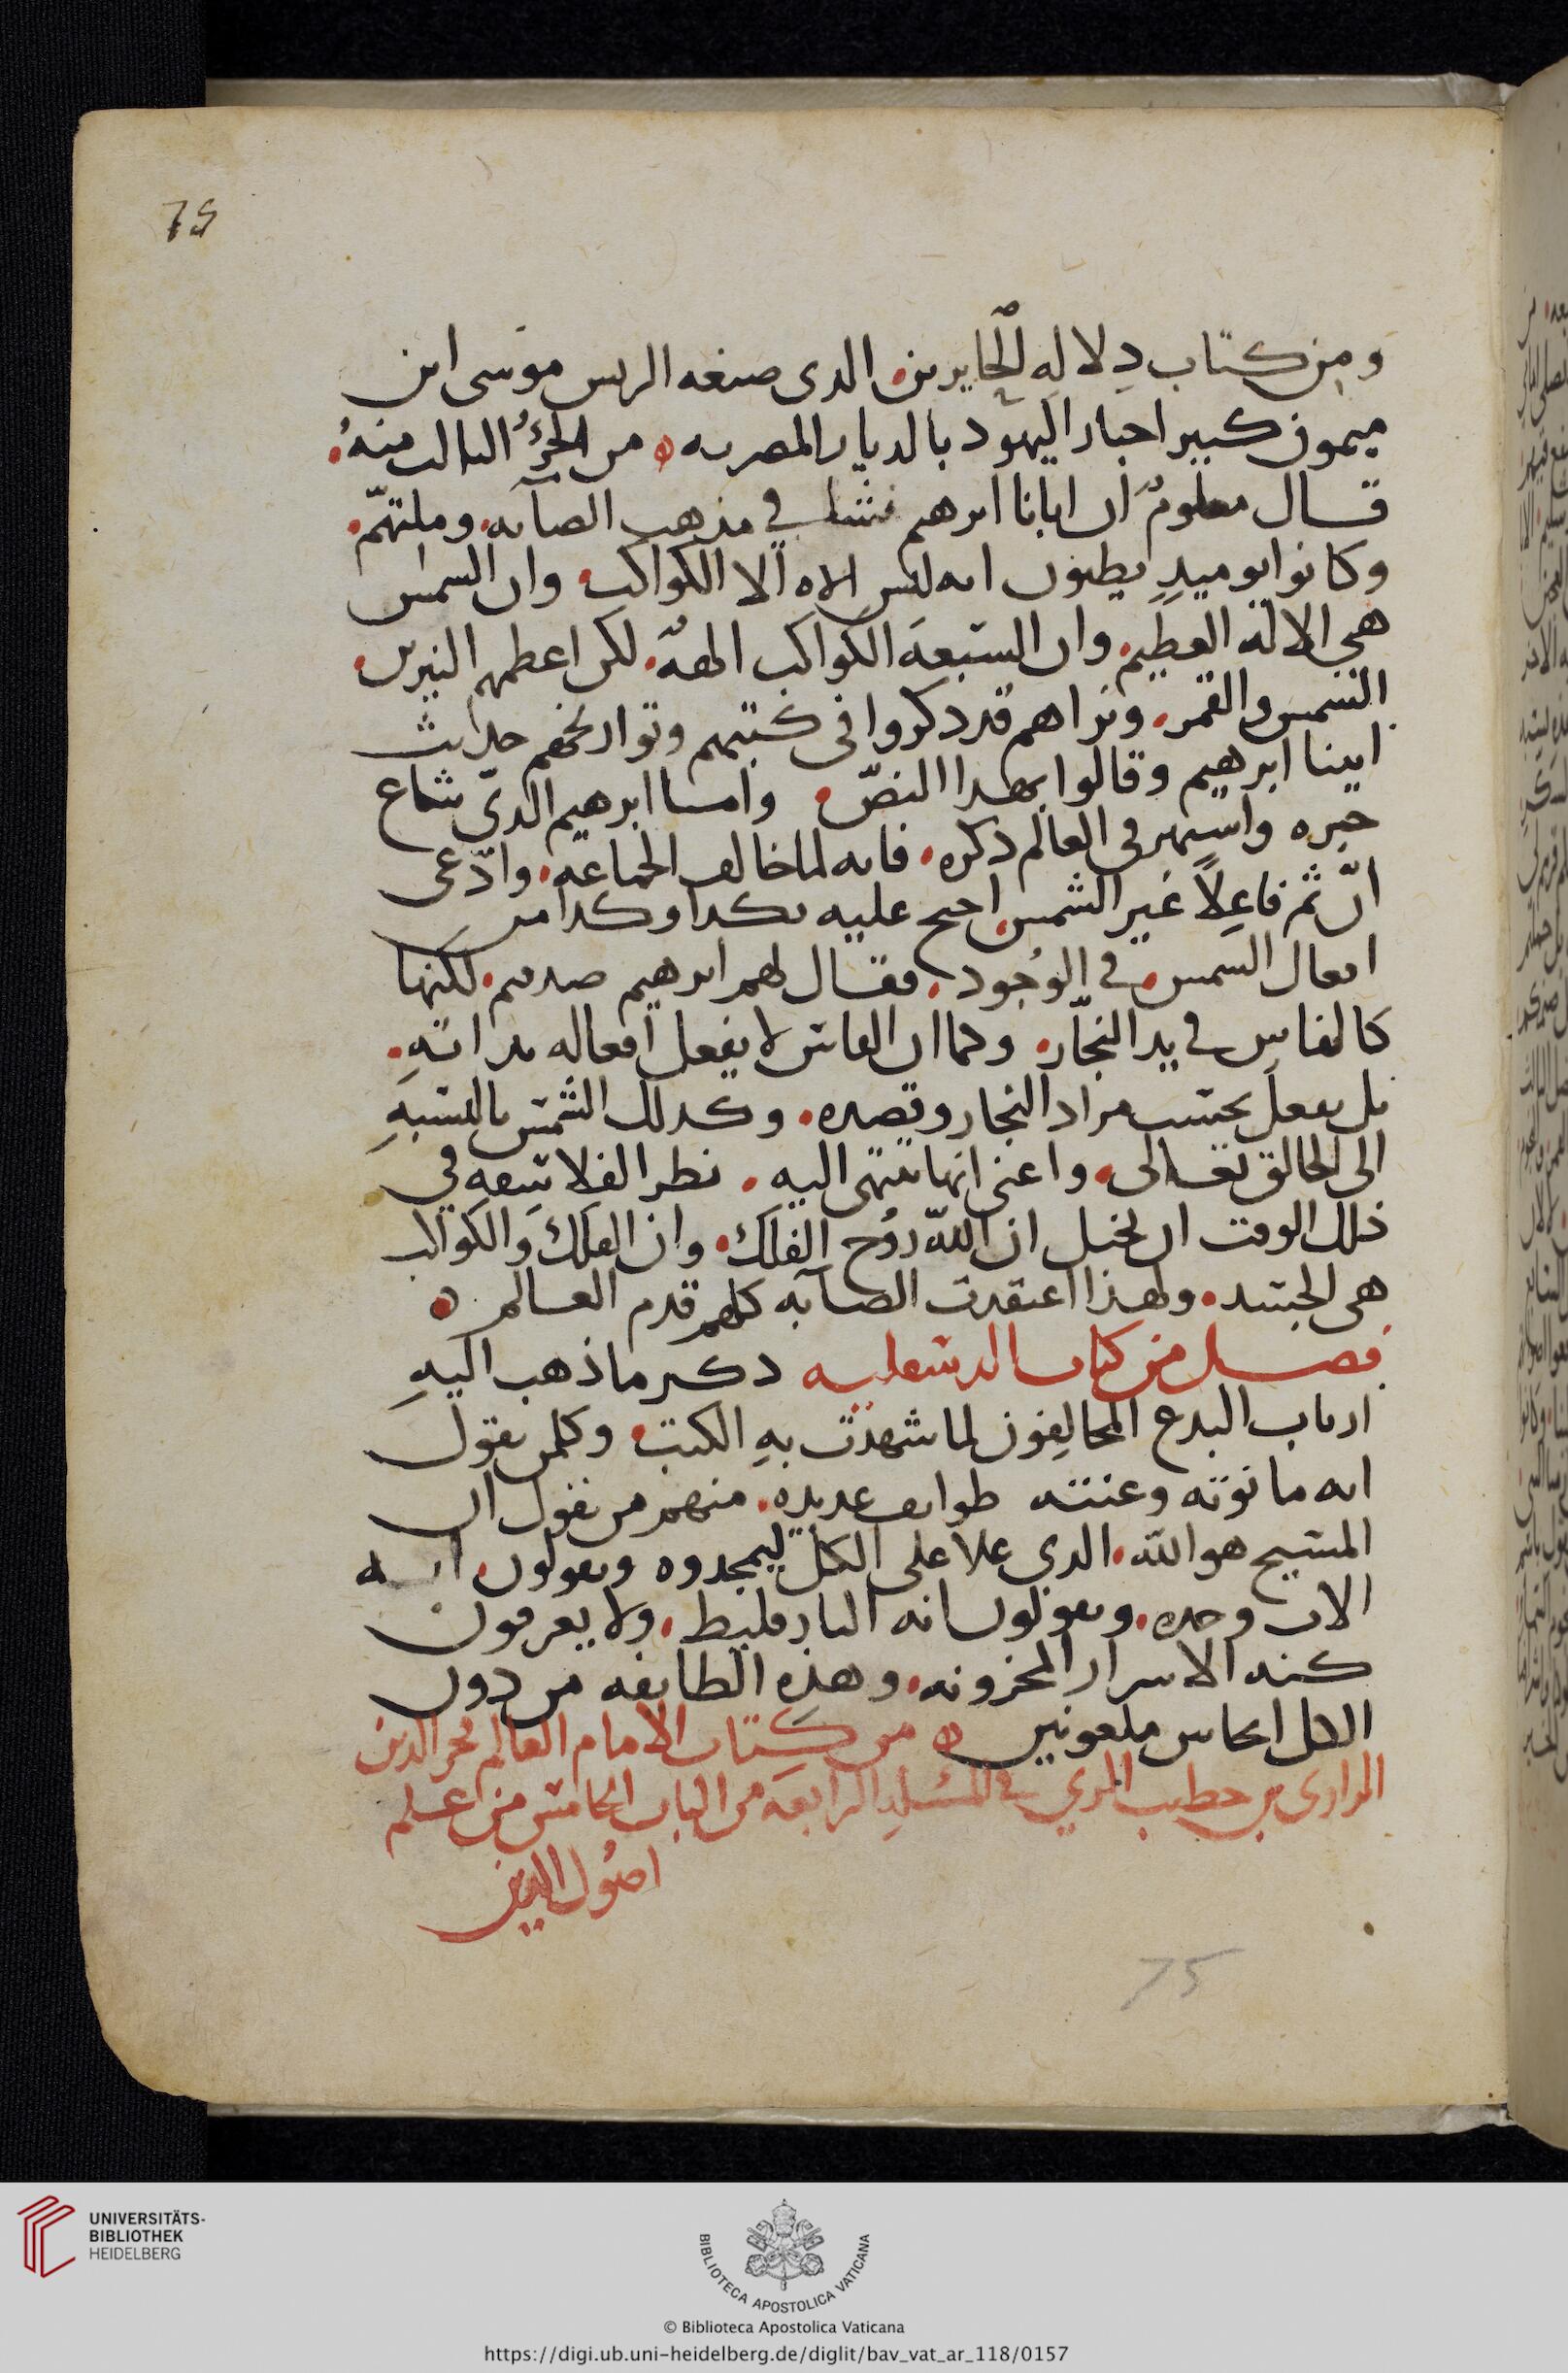 75
ومن كتاب دلاله الحايرين الدى صنفه الريس موسى ابن
ميمون كبير احبار اليهود بالديار المصريه من الجزُ الثالث منهُ
قال معلومٌ ان ابانا ابرهيم نشا في مذهب الصابه وملتهم
وكانوا يوميدٍ يظنون انه ليس الاه الا الكواكب وان الشمس
هي الاله العظيم وان السبعة الكواكب الهةٌ لكن اعظمهم النيرين
الشمس والقمر ونراهم قد دكروا فى كتبهم وتواريخهم حديث
ابينا ابرهيم وقالوا بهدا النصّ واما ابرهيم الدى شاع
خبره واشتهر فى العالم دكره فانه لما خالف الجماعه وادّعى
انّ ثم فاعِلاً غير الشمس احتج عليه بكدا وكدا من
افعال الشمس في الوُجود فقال لهم ابرهيم صدقتم لكنها
كالفاس في يد النجّار وكما ان الفاس لا يفعل افعاله بداتهِ
بل يفعل بحسب مراد النجار وقصده وكدلك الشمس بالنسبهِ
الى الخالق تعالى واعنى انها تنتهى اليه نظر الفلاسفهِ في
ذلك الوقت ان تخيل ان اللّه رُوح الفلك وان الفلك والكواكب
هى الجسد ولهذا اعتقدت الصابه كلهم قدم العالم
فصل من كتاب الدسقليه دكر ما ذهب اليهِ
ارباب البدع المخالِفون لما شهدت بهِ الكتب وكلمن يقول
انه ما نوته وعنته طوايف عديده منهم من يقول ان
المسيح هو الله الدي علا على الكل ليمجدوه ويقولون انه
الاب وحده ويقولون انه البارقليط ولا يعرفون
كنه الاسرار المخزونه وهذهِ الطايفه من دون
الكل انجاس ملعونين من كتاب الامام العالم فخر الدين
الرازى بن خطيب الري في المسلهِ الرابعه من الباب الخامس من علم
اصُول الدين
75
UNIVERSITÄTS-
BIBLIOTHEK
HEIDELBERG
BIBLIOTECA APOSTOLICA VATICANA
© Biblioteca Apostolica Vaticana
https://digi.ub.uni-heidelberg.de/diglit/bav_vat_ar_118/0157